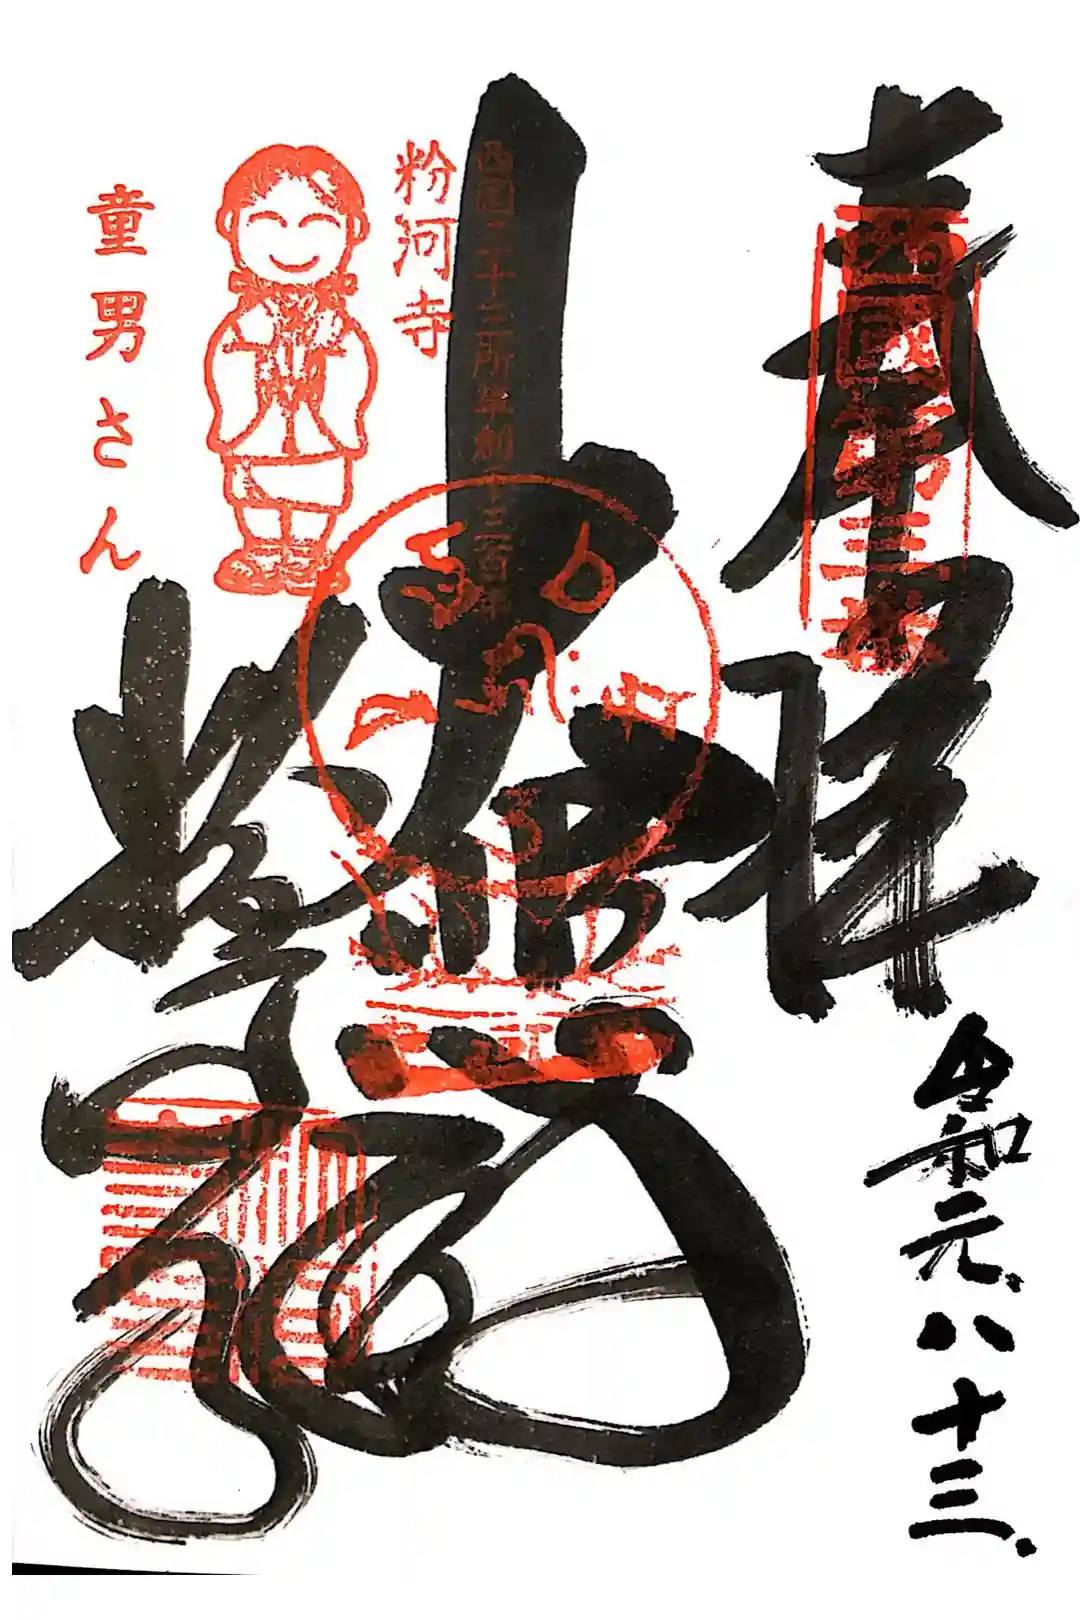 奉拝
令和元、八十三、
西国第三番
大悲殿
西国三十三所草創千三百年
粉河寺
童男さん
粉河寺